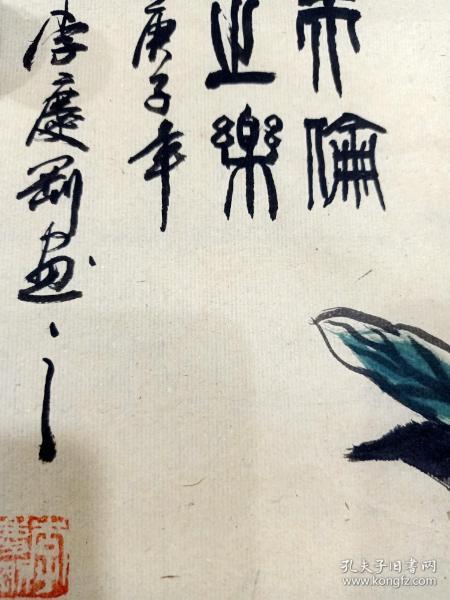 天倫
之樂
庚子年
李慶剛畫之
孔夫子旧书网
www.kongfz.com